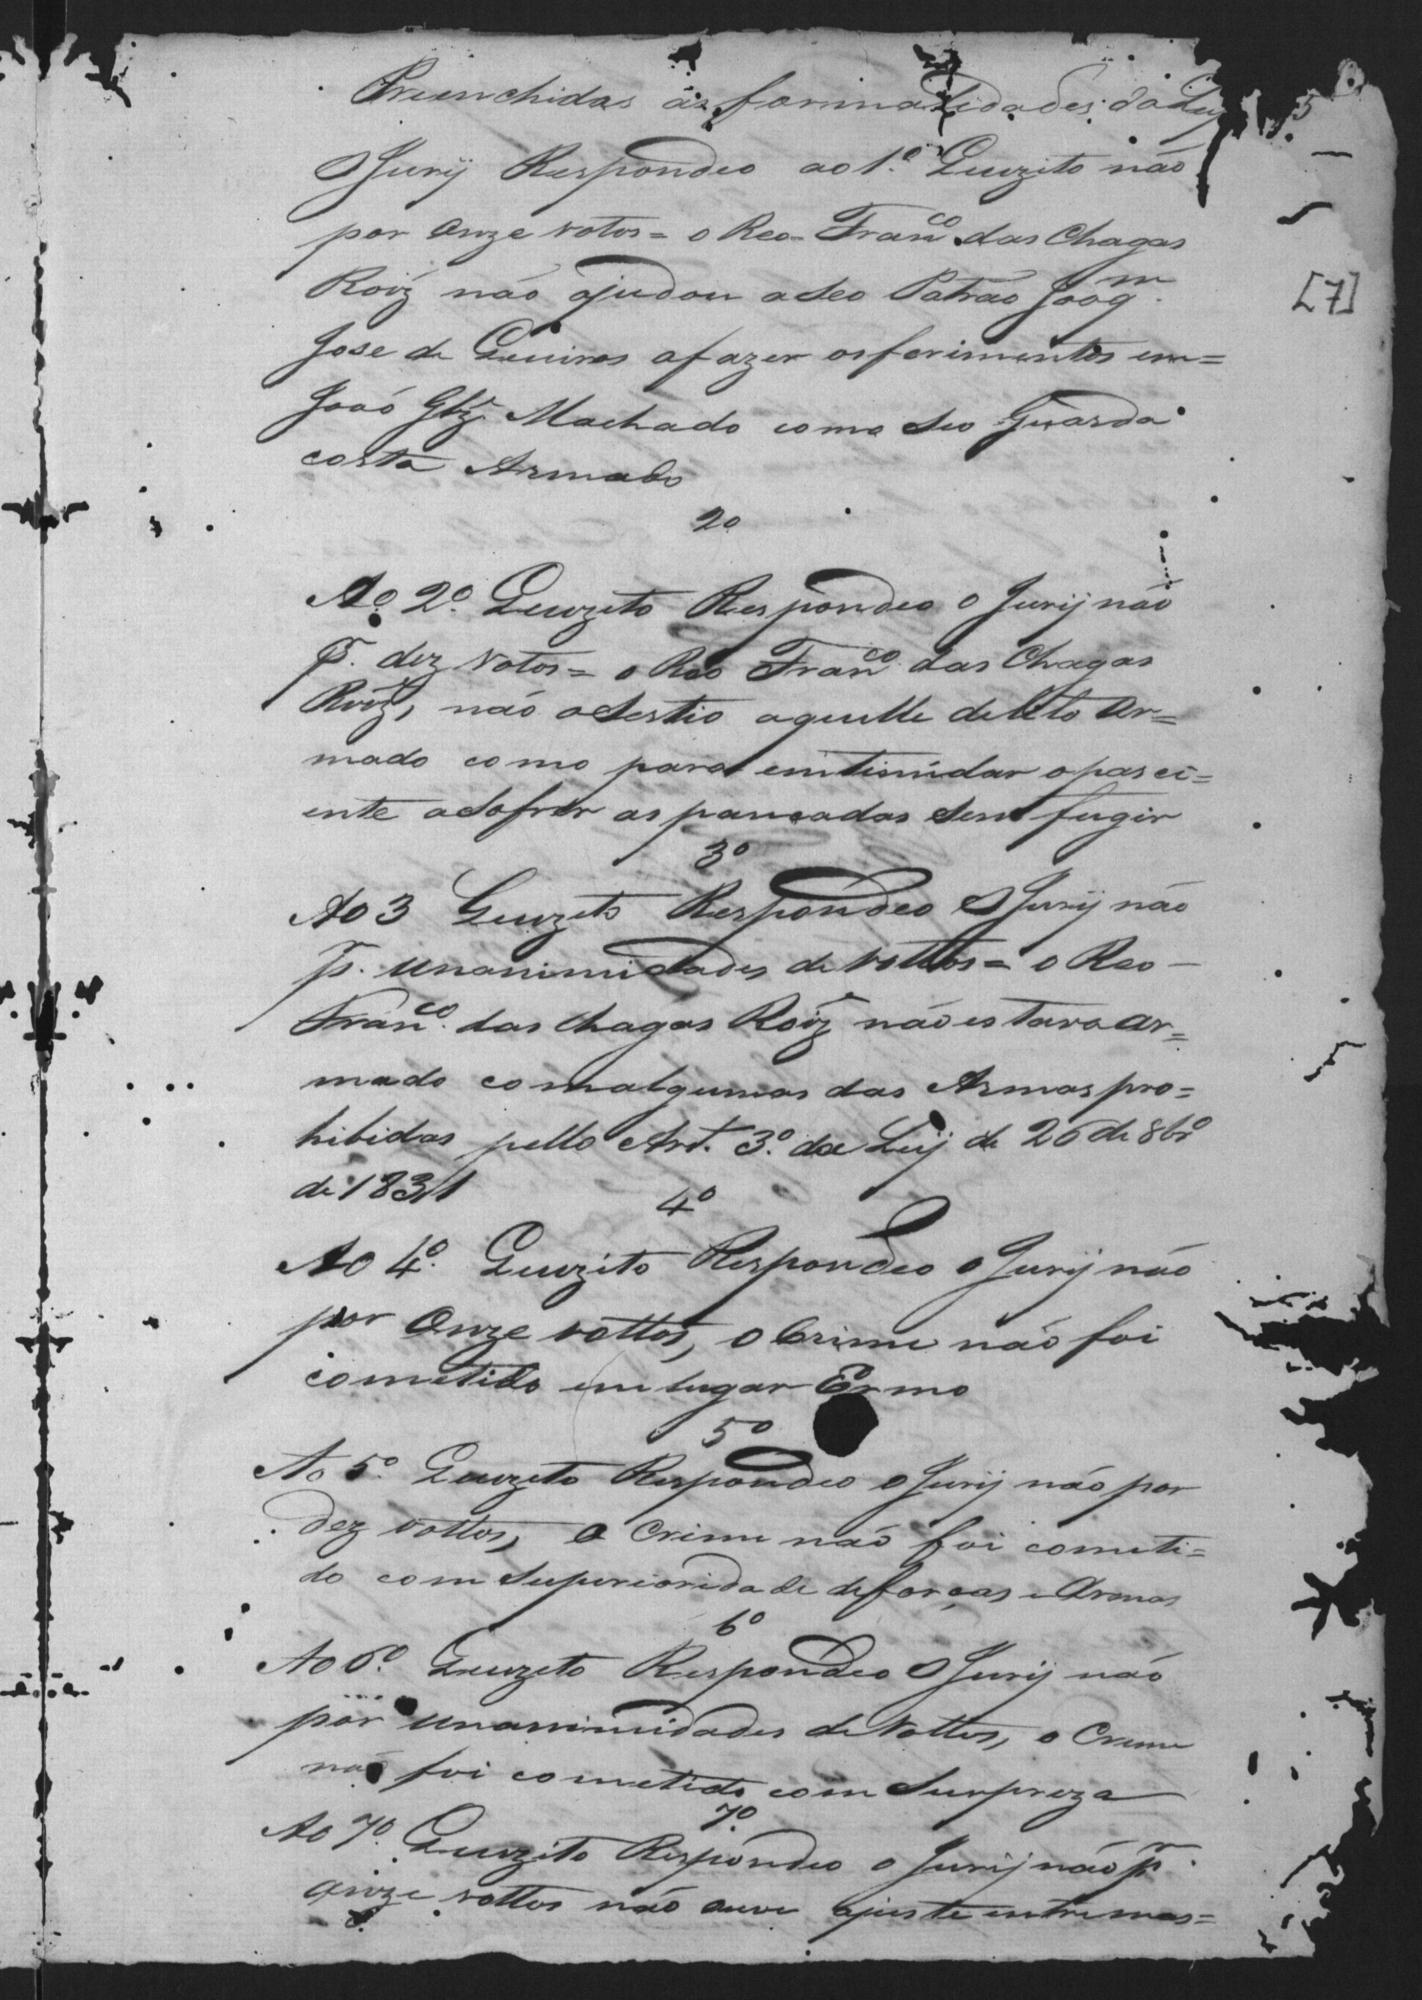 Preenchidas as formalidades da Ley 5
O Jurij Respondeo ao 1º Quezito não
por onze votos = o Reo Franco das Chagas
Roiz não ajudou a seo Patrão Joaqm.
Jose de Queiros a fazer os ferimentos em =
João Glz Machado como seo Guarda
costa Armado
[7]
2º
Ao 2º Quezito Respondeo o Jurij não
pr. dez votos = o Reo Franco das Chagas
Roiz, não acestio aquelle delito Ar=
mado como para emtimidar o paseci=
ente a sofrer as pancadas sem fugir
3º
Ao 3 Quezito Respondeo O Jurij não
pr. unanimidades de vottos = o Reo -
Franco das Chagas Roiz não estava Ar=
mado com algumas das Armas pro=
hibidas pello Art. 3º da Leij de 26 de 8bro
de 1831
4º
Ao 4º Quezito Respondeo o Jurij não
por Onze vottos, o Crime não foi
cometido em lugar Ermo
5º
Ao 5º Quezito Respondeo o Jurij não por
dez vottos, o Crime não foi cometi=
do com superioridade de forças e Armas
6º
Ao 6º Quezito Respondeo O Jurij não
por unanimidades de Vottos, o Crime
não foi cometido com surpreza
7º
Ao 7º Quezito Respondeo o Jurij não pr.
onze vottos não ouve ajuste entre mas=